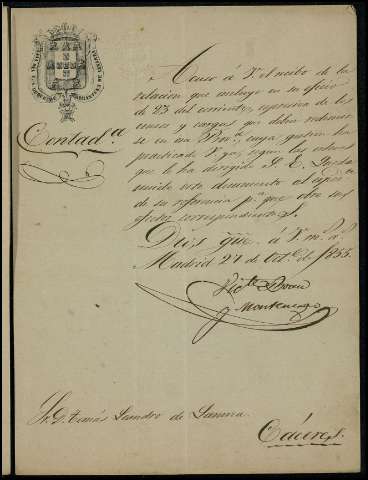 Contad.ª
Acuso á V. el recibo de la
relacion que incluye en su oficio
de 23 del corriente, espresiva de los
censos y cargas que deben redimir-
se en esa Prov.ª cuya gestion ha
practicado V. ya, segun las
que le ha dirigido S. E.
unido este documento al
de su referencia p.ª que obre sus
efectos correspondientes.
Dios gũe á V. m.s a.s
Madrid 27 de Oct.e de 1855.
Montenegro
Sr. D. Tomás Leandro de
Cáceres.